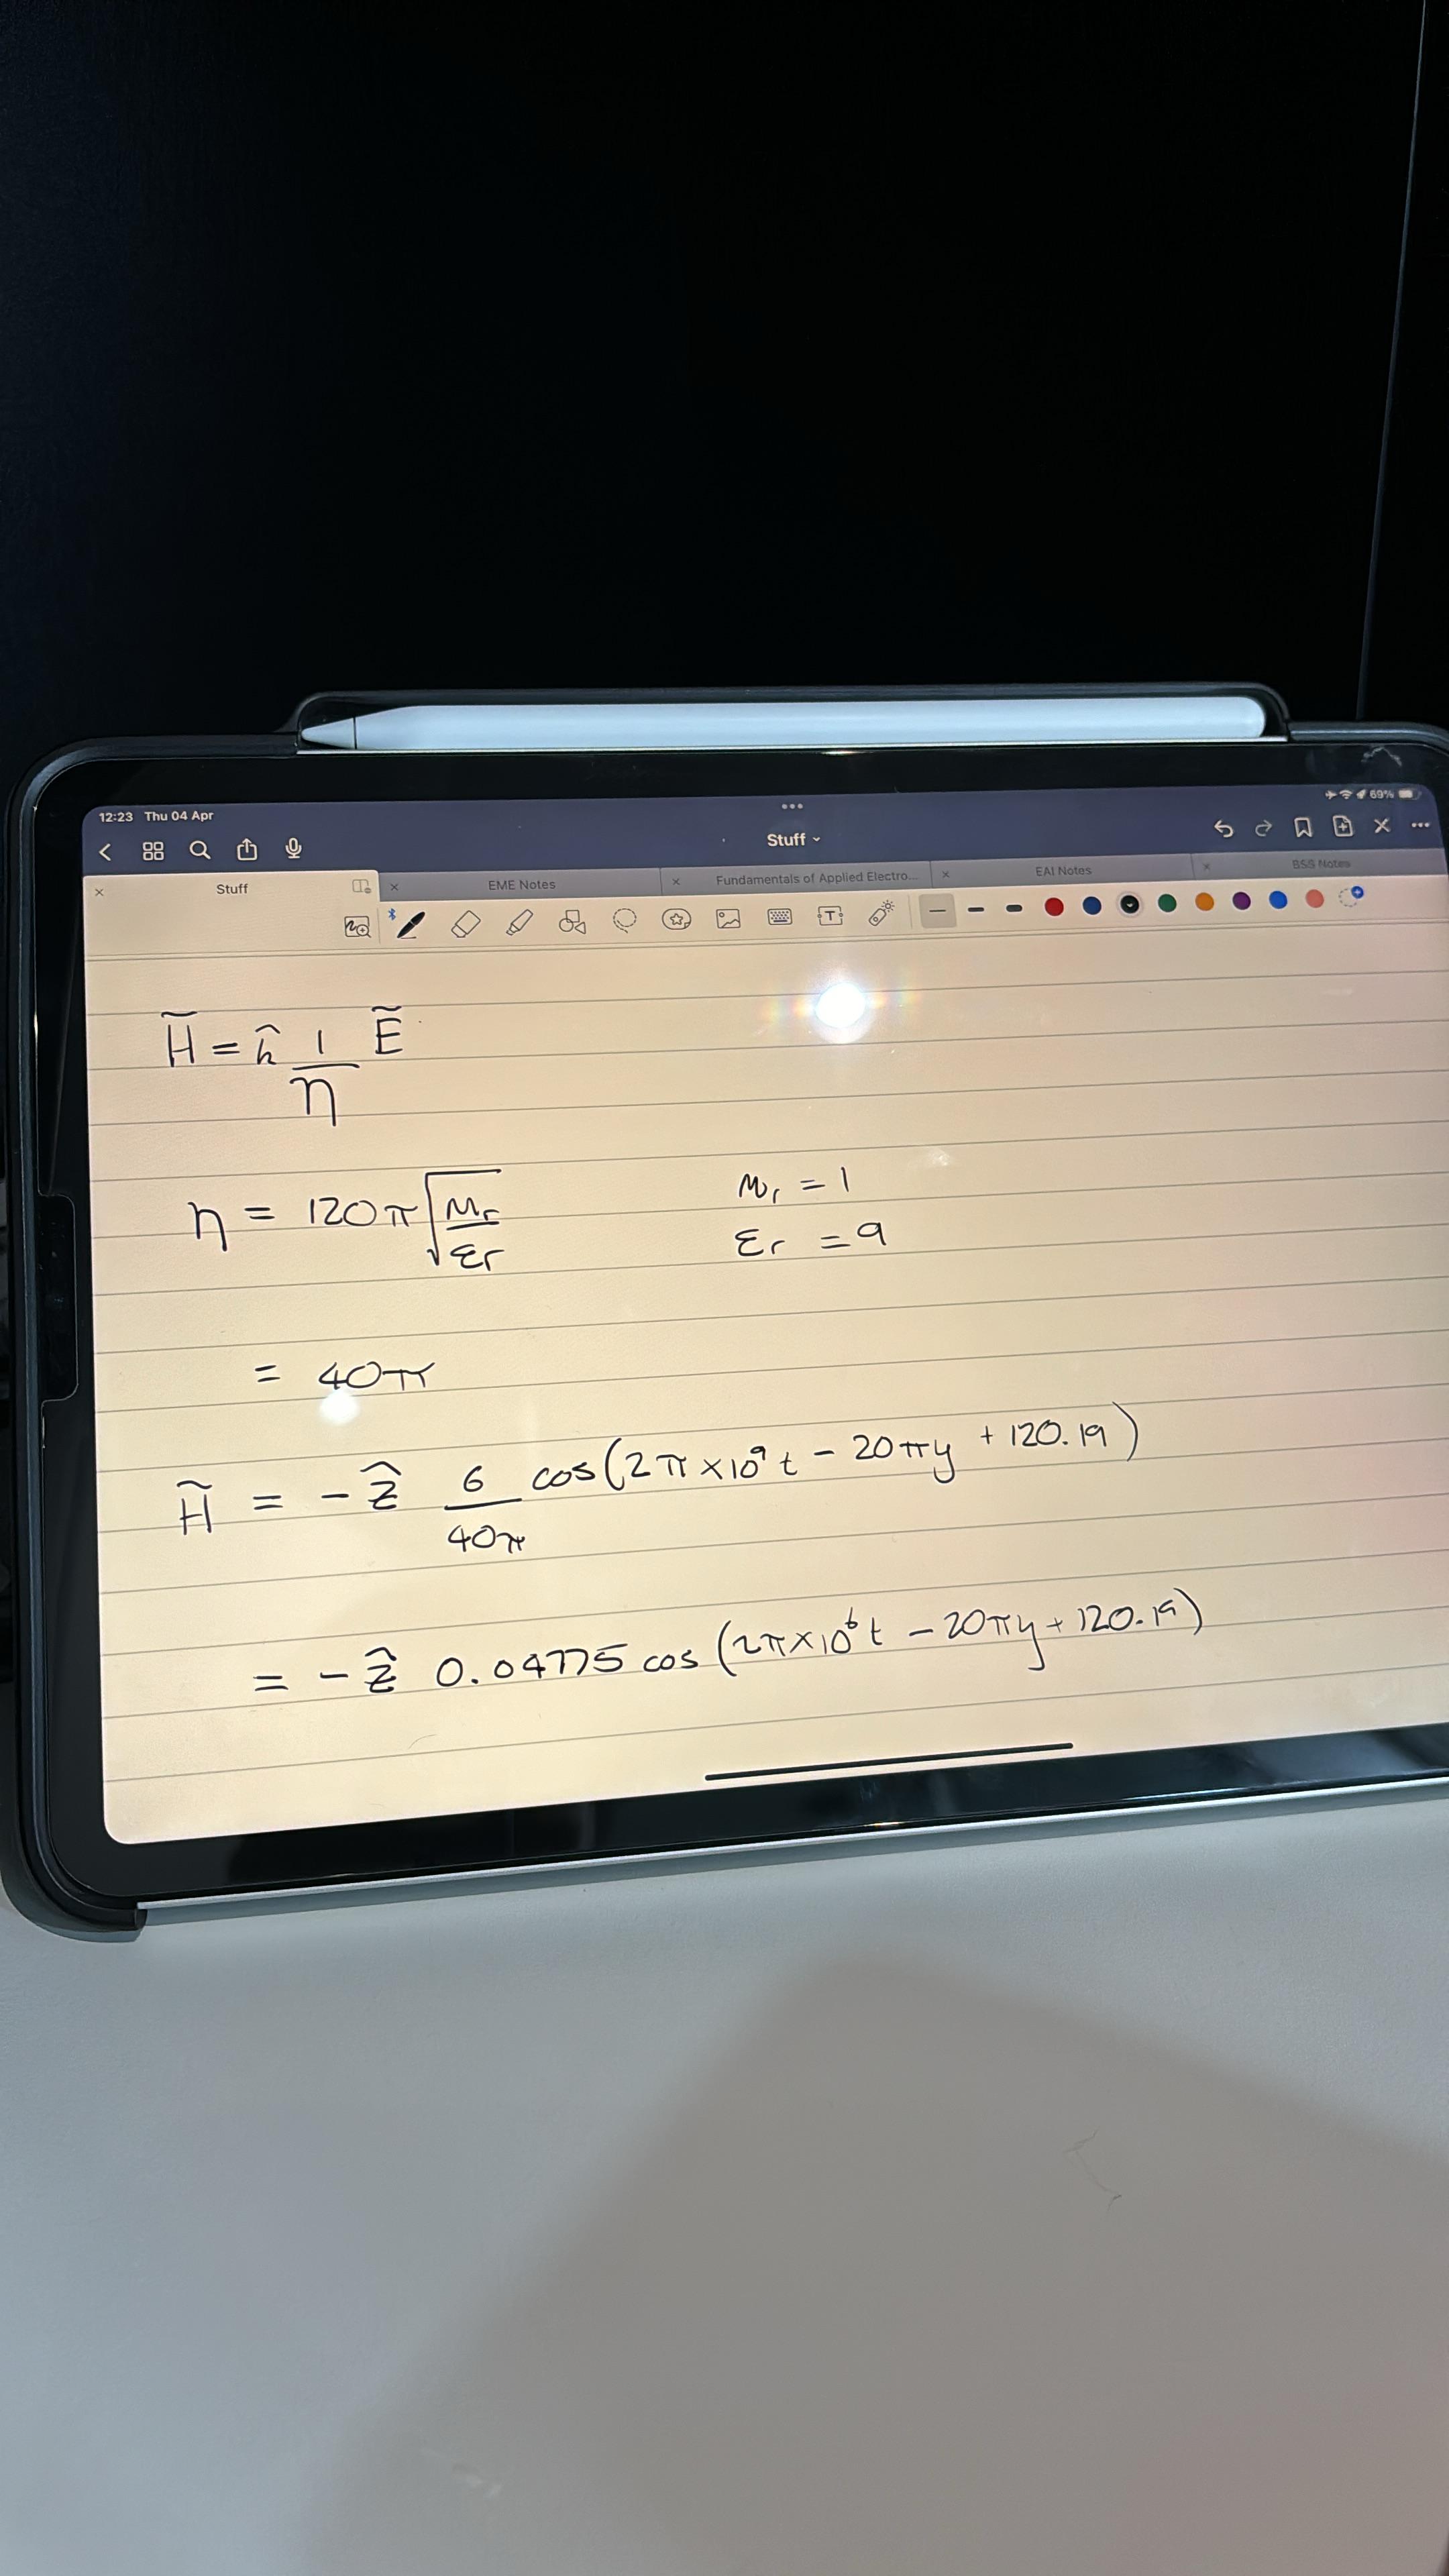 12:23 Thu 04 Apr
69%
Stuff
Stuff
EME Notes
Fundamentals of Applied Electro...
EAI Notes
BSS Notes
H̃ = k̂ 1/η Ẽ
η = 120π √(μr/εr)
μr = 1
εr = 9
= 40π
H̃ = -ẑ 6/40π cos(2π×10⁹t - 20πy + 120.19)
= -ẑ 0.04775 cos(2π×10⁶t - 20πy + 120.19)